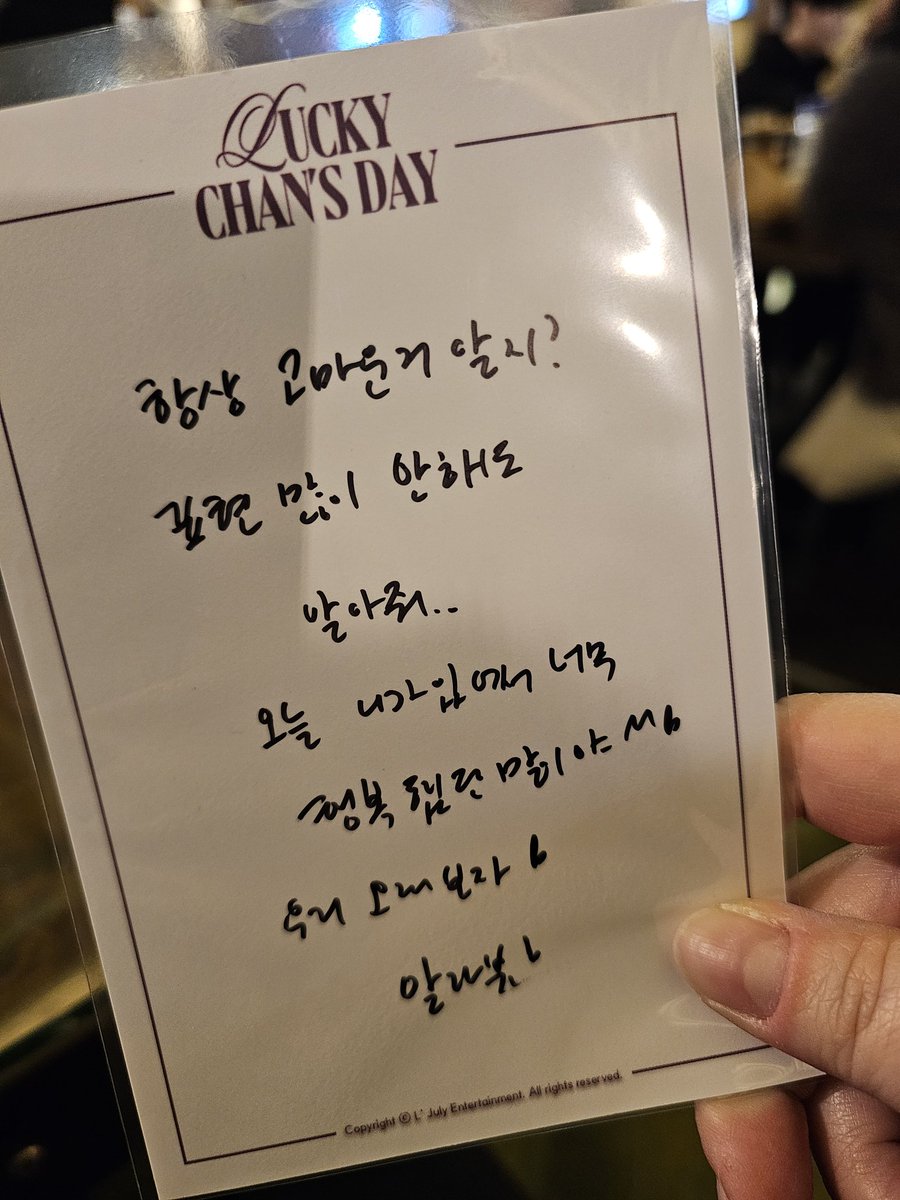 LUCKY
CHAN'S DAY
항상 고마운거 알지?
표현 많이 안해도
알아줘..
오늘 니가 너무
행복 말이야
우리 오래보자
알라뷰
Copyright ⓒ L' July Entertainment. All rights reserved.